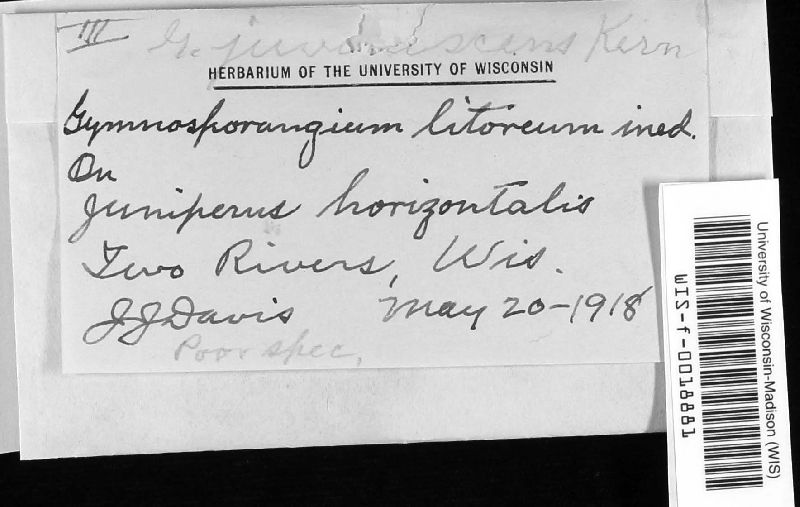 III G. juvenescens Kern
HERBARIUM OF THE UNIVERSITY OF WISCONSIN
Gymnosporangium litoreum ined.
On
Juniperus horizontalis
Two Rivers, Wis.
JJ Davis May 20-1918
Poor spec.
University of Wisconsin-Madison (WIS)
WIS-f-0018881